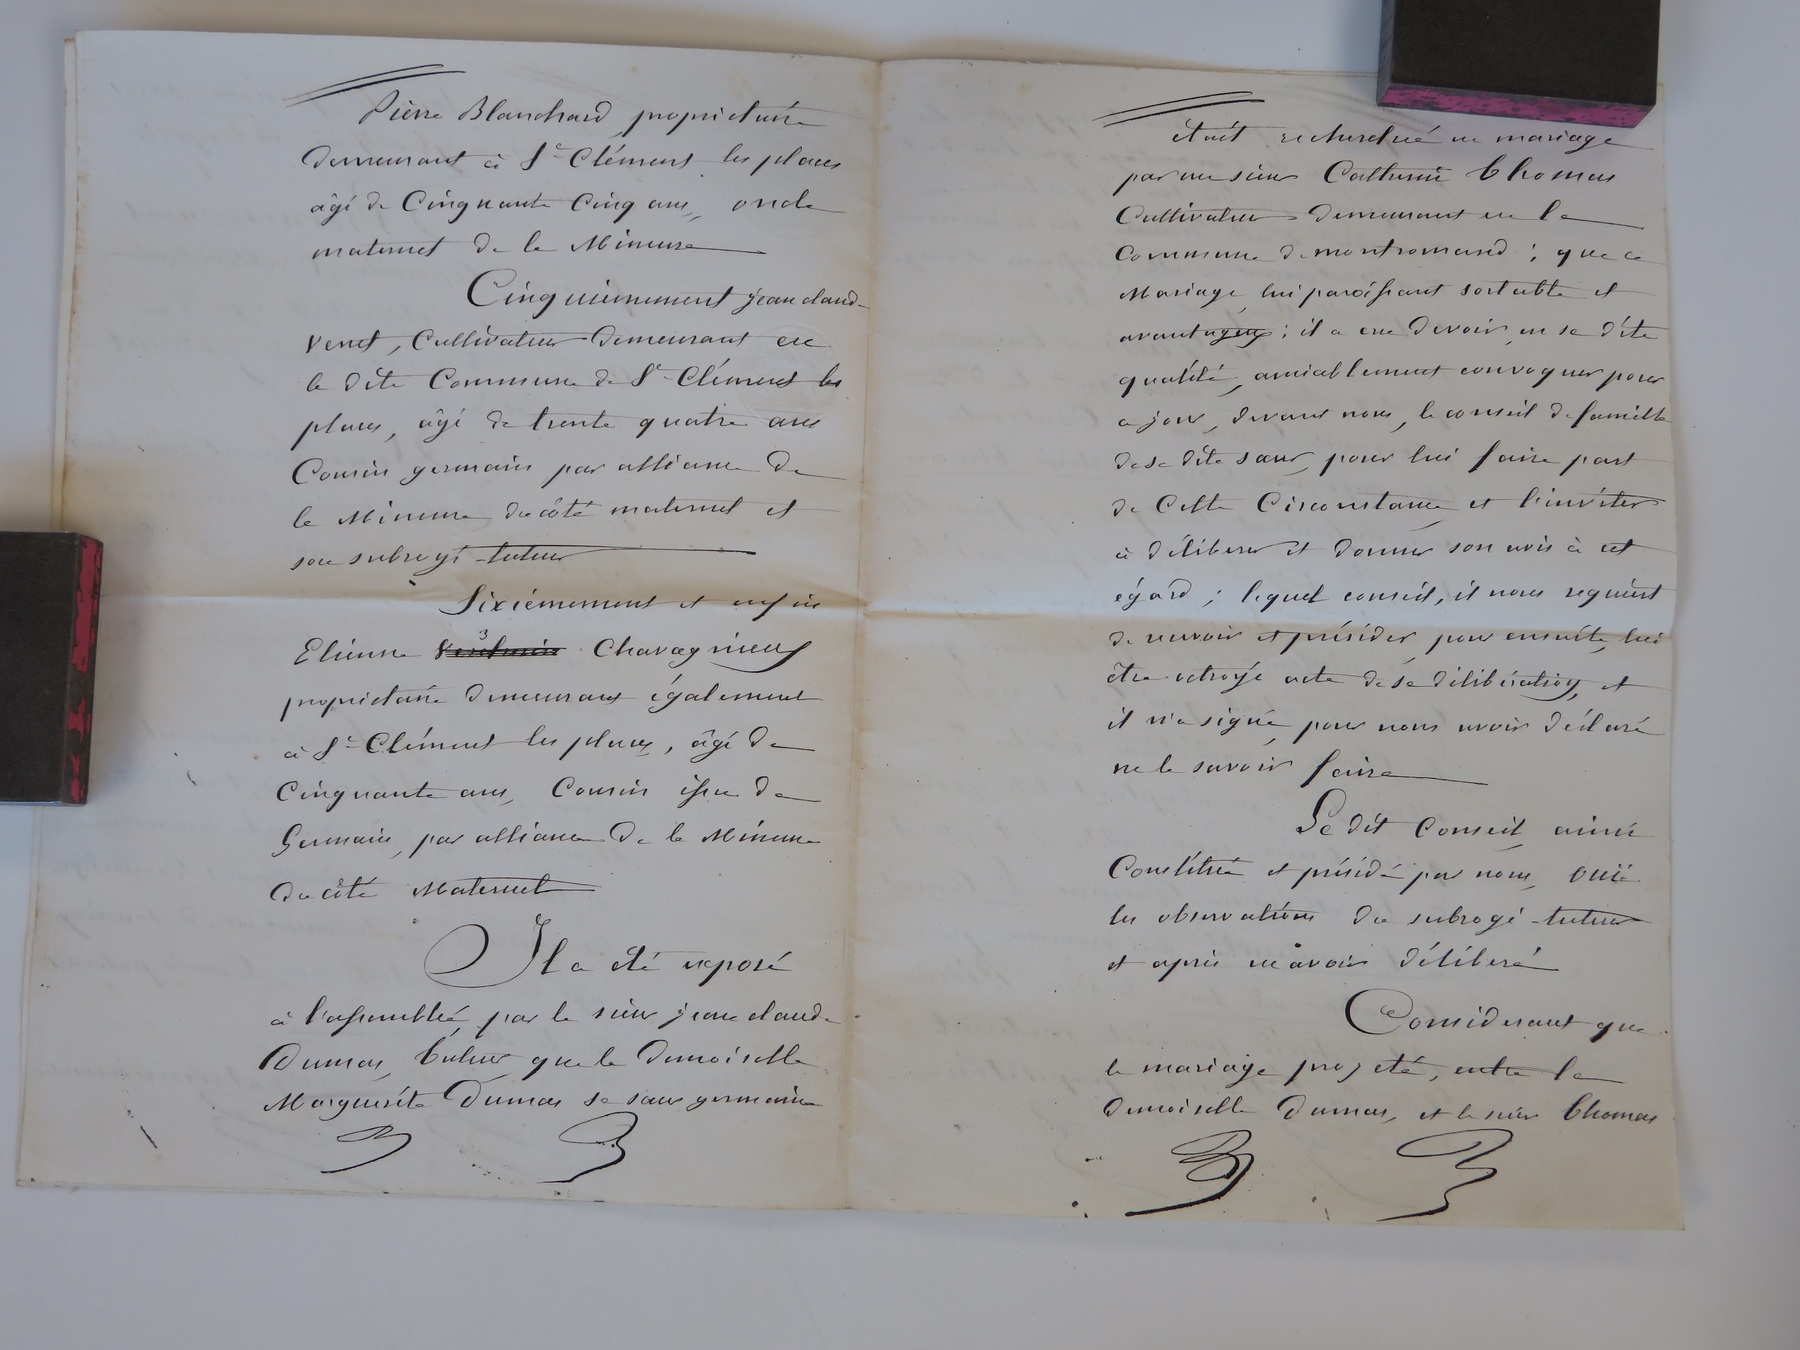 Pierre Blanchard, propriétaire
demeurant à St Clément les places
âgé de Cinquante Cinq ans, oncle
maternel de la Mineure
Cinquièmement jean claude
venet, Cultivateur demeurant en
la dite Commune de St Clément les
places, âgé de trente quatre ans
Cousin germain par alliance de
la Mineure du côté maternel et
son subrogé-tuteur
Sixièmement et enfin
Etienne Chavagnieux
propriétaire demeurant également
à St Clément les places, âgé de
Cinquante ans, Cousin issu de
Germain, par alliance de la Mineure
du côté Maternel
Il a été exposé
à l'assemblée, par le sieur jean claude
Dumas, tuteur, que la demoiselle
Marguerite Dumas sa sœur germaine
était recherchée en mariage
par un sieur Thomas
Cultivateur demeurant en la
Commune de montromand ; que ce
Mariage lui paroissant sortable et
avantageux ; il a cru devoir, en sa dite
qualité, amiablement convoquer pour
ce jour, devant nous, le conseil de famille
de sa dite sœur, pour lui faire part
de Cette Circonstance et l'inviter
à délibérer et donner son avis à cet
égard ; lequel conseil, il nous requiert
de recevoir et présider, pour ensuite, lui
être octroyé acte de sa délibération, et
il n'a signé, pour nous avoir déclaré
ne le savoir faire
Le dit Conseil, ainsi
Constitué et présidé par nous, ouï
les observations du subrogé-tuteur
et après en avoir délibéré
Considérant que
le mariage projeté, entre la
demoiselle Dumas, et le sieur Thomas